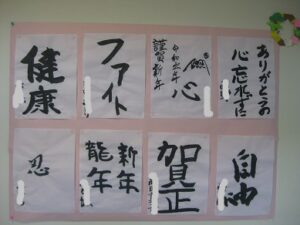 健康
ファイト
心
令和六年
謹賀新年
ありがとうの
心忘れずに
忍
新年
龍年
賀正
自由